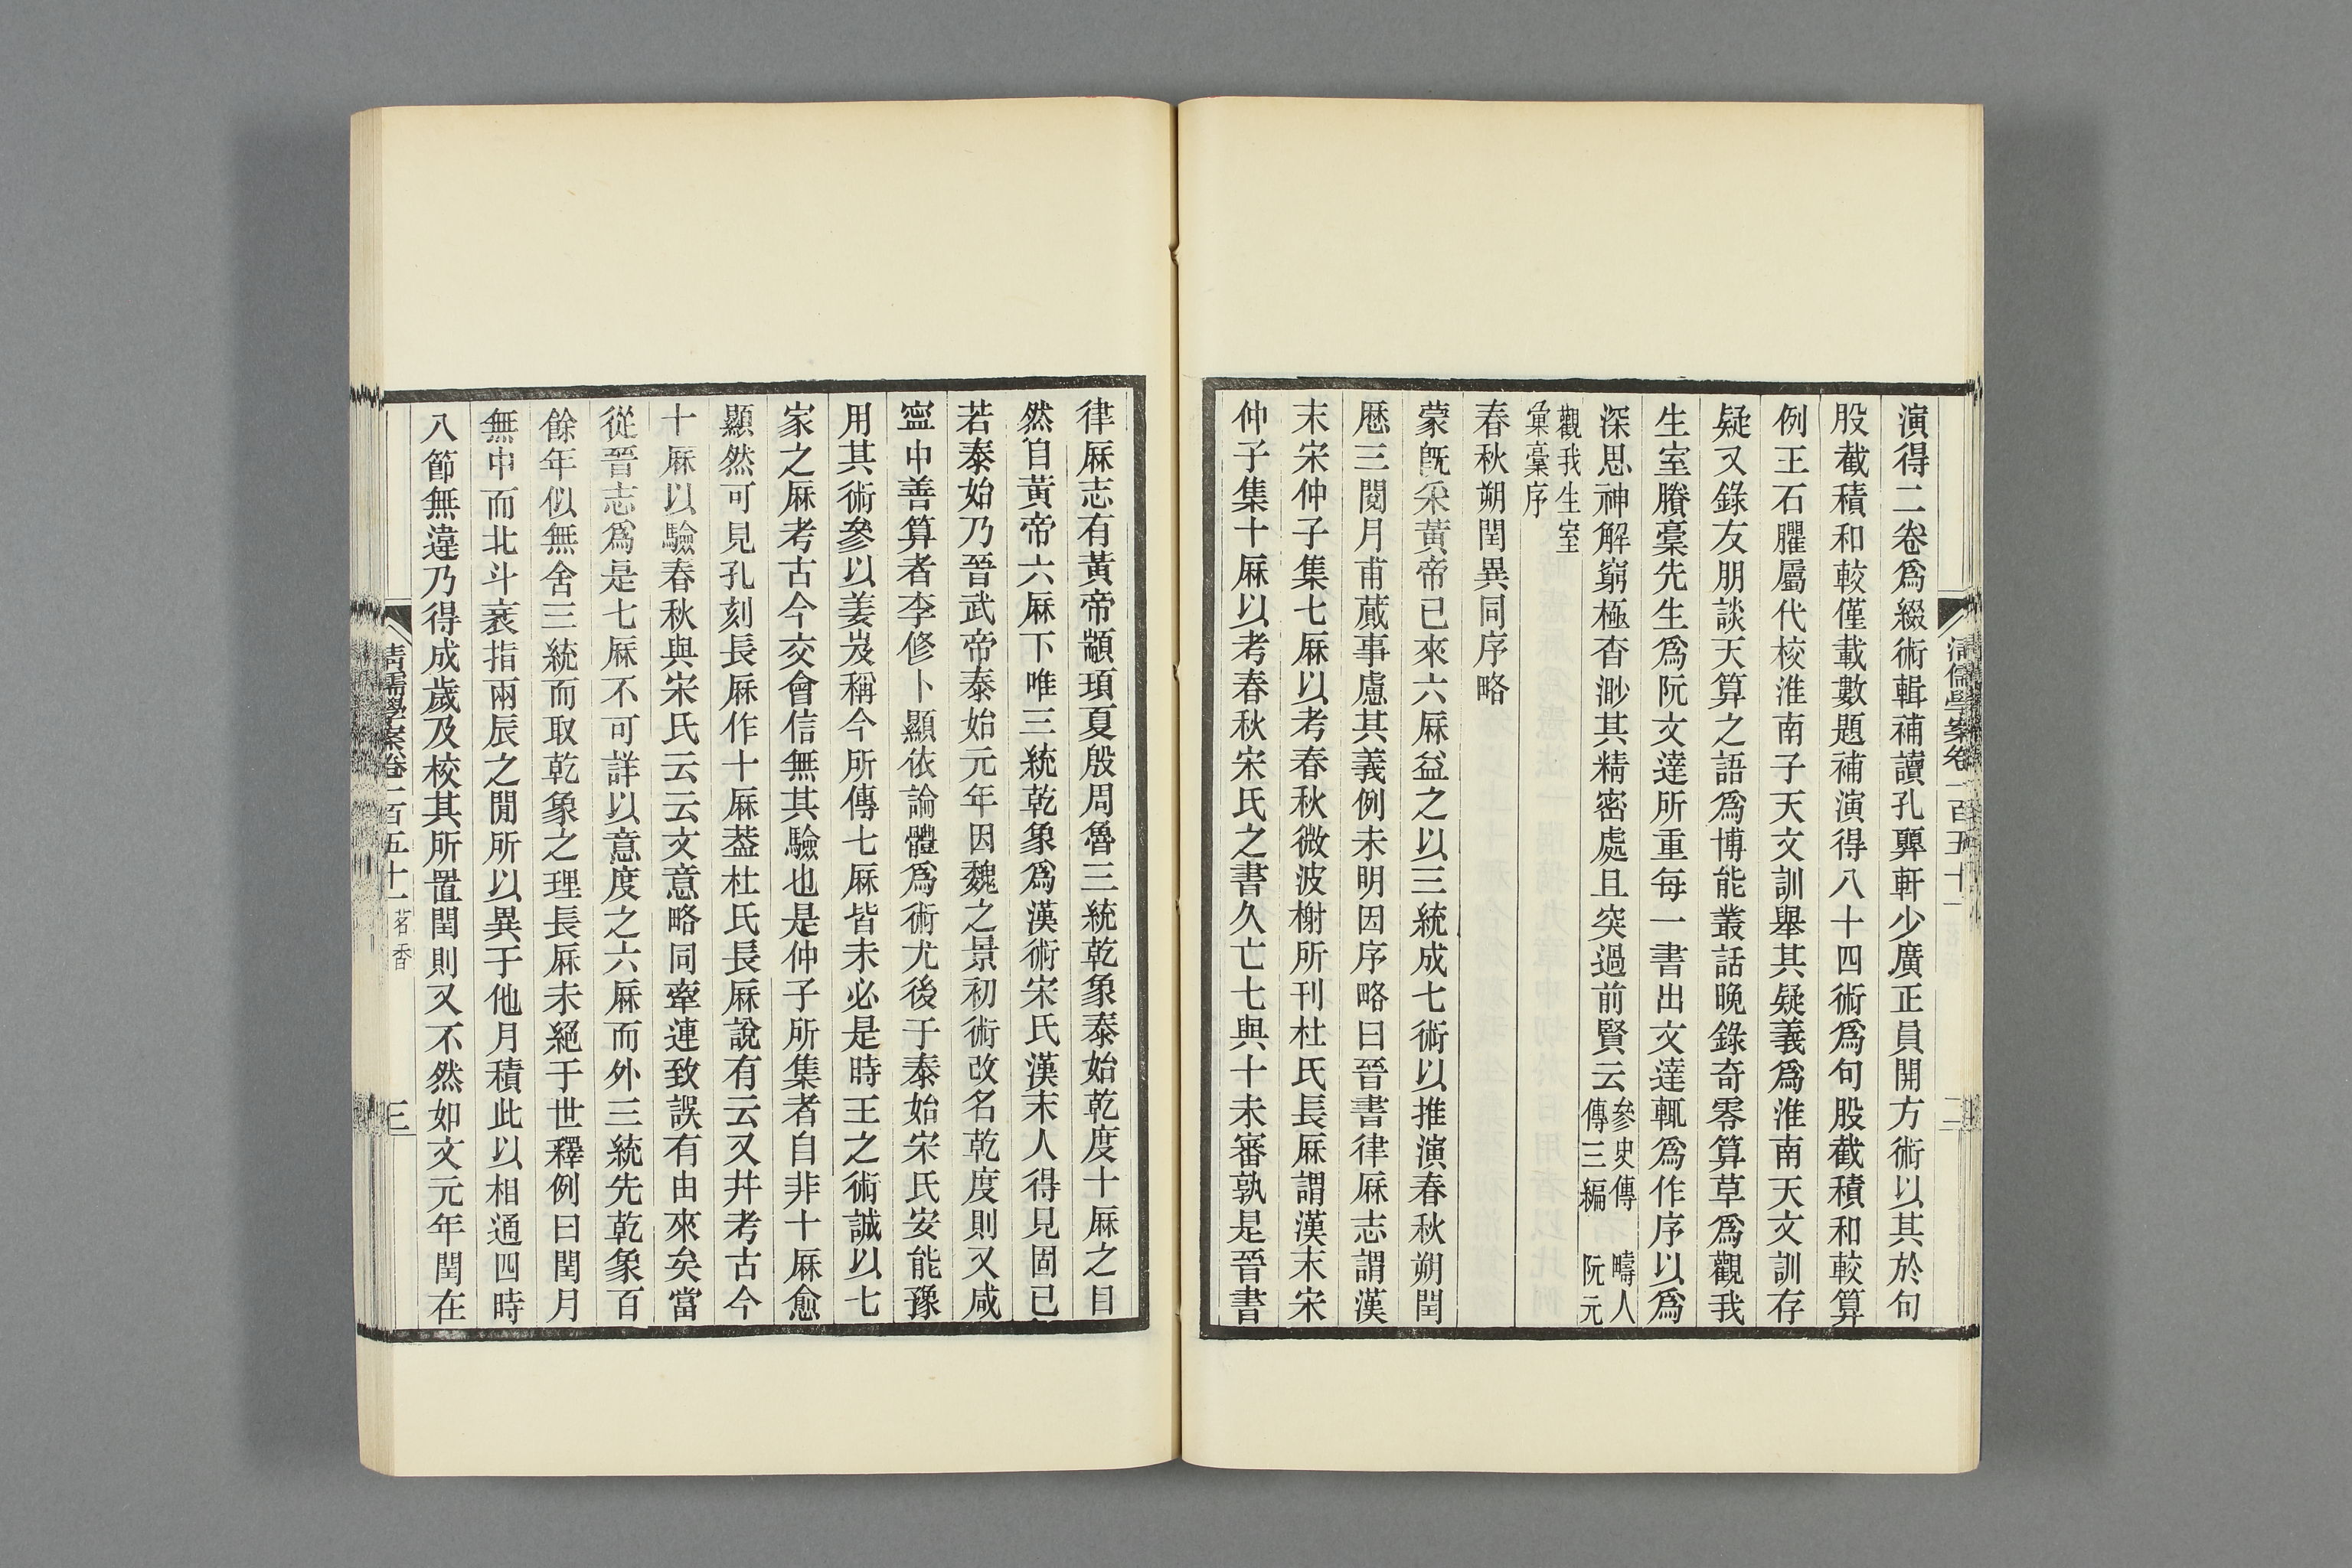 演得二卷爲綴術輯補讀孔顨軒少廣正員開方術以其於句
股截積和較僅載數題補演得八十四術爲句股截積和較算
例王石臞屬代校淮南子天文訓舉其疑義爲淮南天文訓存
疑又錄友朋談天算之語爲博能叢話晚錄奇零算草爲觀我
生室賸稾先生爲阮文達所重每一書出文達輒爲作序以爲
深思神解窮極杳渺其精密處且突過前賢云參史傳 疇人傳三編 阮元
觀我生室
彙稾序
春秋朔閏異同序略
蒙旣采黃帝已來六厤益之以三統成七術以推演春秋朔閏
厯三閱月甫蕆事慮其義例未明因序略曰晉書律厤志謂漢
末宋仲子集七厤以考春秋微波榭所刊杜氏長厤謂漢末宋
仲子集十厤以考春秋宋氏之書久亡七與十未審孰是晉書
清儒學案卷一百五十一
二
律厤志有黃帝顓頊夏殷周魯三統乾象泰始乾度十厤之目
然自黃帝六厤下唯三統乾象爲漢術宋氏漢末人得見固已
若泰始乃晉武帝泰始元年因魏之景初術改名乾度則又咸
寍中善算者李修卜顯依論體爲術尤後于泰始宋氏安能豫
用其術參以姜岌稱今所傳七厤皆未必是時王之術誠以七
家之厤考古今交會信無其驗也是仲子所集者自非十厤愈
顯然可見孔刻長厤作十厤葢杜氏長厤說有云又幷考古今
十厤以驗春秋與宋氏云云文意略同牽連致誤有由來矣當
從晉志爲是七厤不可詳以意度之六厤而外三統先乾象百
餘年似無舍三統而取乾象之理長厤未絕于世釋例曰閏月
無中而北斗衺指兩辰之閒所以異于他月積此以相通四時
八節無違乃得成歲及校其所置閏則又不然如文元年閏在
清儒學案卷一百五十一 茗香
三